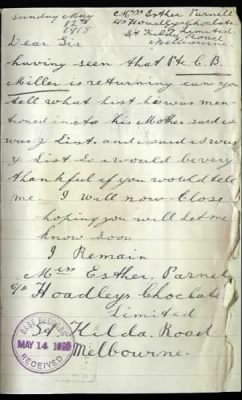 Sunday May
12th
1918
Miss Esther Parnell
c/o Hoadleys Chocolate
Limited
St Kilda Road
Melbourne.
Dear Sir
having seen that Pte C. B.
Miller is returning can you
tell what list he was men-
tioned in as his Mother said it
was List and I said it was
List So I would be very
thankful if you would tell
me. I will now Close
hoping you will let me
know soon
I Remain
Miss Esther, Parnell
c/o Hoadleys Choclate
Limited
St Kilda. Road
Melbourne.
BASE RECORDS
MAY 14 1918
RECEIVED